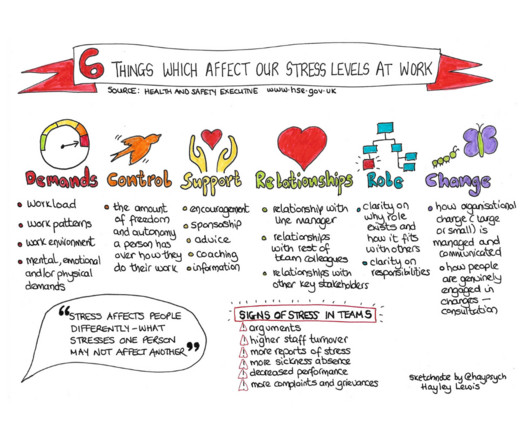 6 THINGS WHICH AFFECT OUR STRESS LEVELS AT WORK
SOURCE: HEALTH AND SAFETY EXECUTIVE www.hse.gov.uk
Demands
workload
work patterns
work environment
mental, emotional
and/or physical
demands
Control
the amount
of freedom
and autonomy
a person has
over how they
do their work
Support
encouragement
sponsorship
advice
coaching
information
Relationships
relationship with
line manager
relationships
with rest of
team colleagues
relationships with
other key stakeholders
Role
clarity on
why role
exists and
how it fits
with others
clarity on
responsibilities
Change
how organisational
change (large
or small) is
managed and
communicated
how people
are genuinely
engaged in
changes –
consultation
"STRESS AFFECTS PEOPLE
DIFFERENTLY – WHAT
STRESSES ONE PERSON
MAY NOT AFFECT ANOTHER"
SIGNS OF STRESS IN TEAMS
arguments
higher staff turnover
more reports of stress
more sickness absence
decreased performance
more complaints and grievances
sketchnote by @haypsych
Hayley Lewis